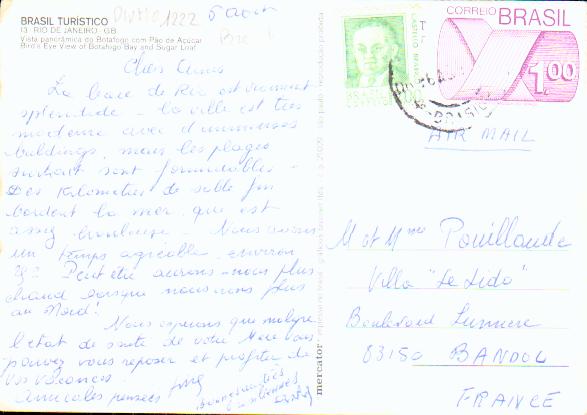 BRASIL TURÍSTICO
13 RIO DE JANEIRO - GB
Vista panorâmica do Botafogo com Pão de Açúcar
Bird's Eye View of Botafogo Bay and Sugar Loaf
1222
5 août
CORREIO BRASIL
1,00
AIR MAIL
Chers Amis
La baie de Rio est vraiment
splendide la ville est très
moderne avec d'immenses
buildings, mais les plages
surtout sont formidables -
Des kilomètres de sable fin
bordent la mer que est
assez houleuse. Nous avons
un temps agréable, environ
Peut être aurons-nous plus
chaud lorsque nous irons plus
au Nord!
Nous espérons que malgré
l'état de santé de votre Mère vous
pouvez vous reposer et profiter de
vos vacances.
Amicales pensées
mercator
M et Mme Pouillaude
Villa "Le Lido"
Boulevard Lumière
83150 BANDOL
FRANCE